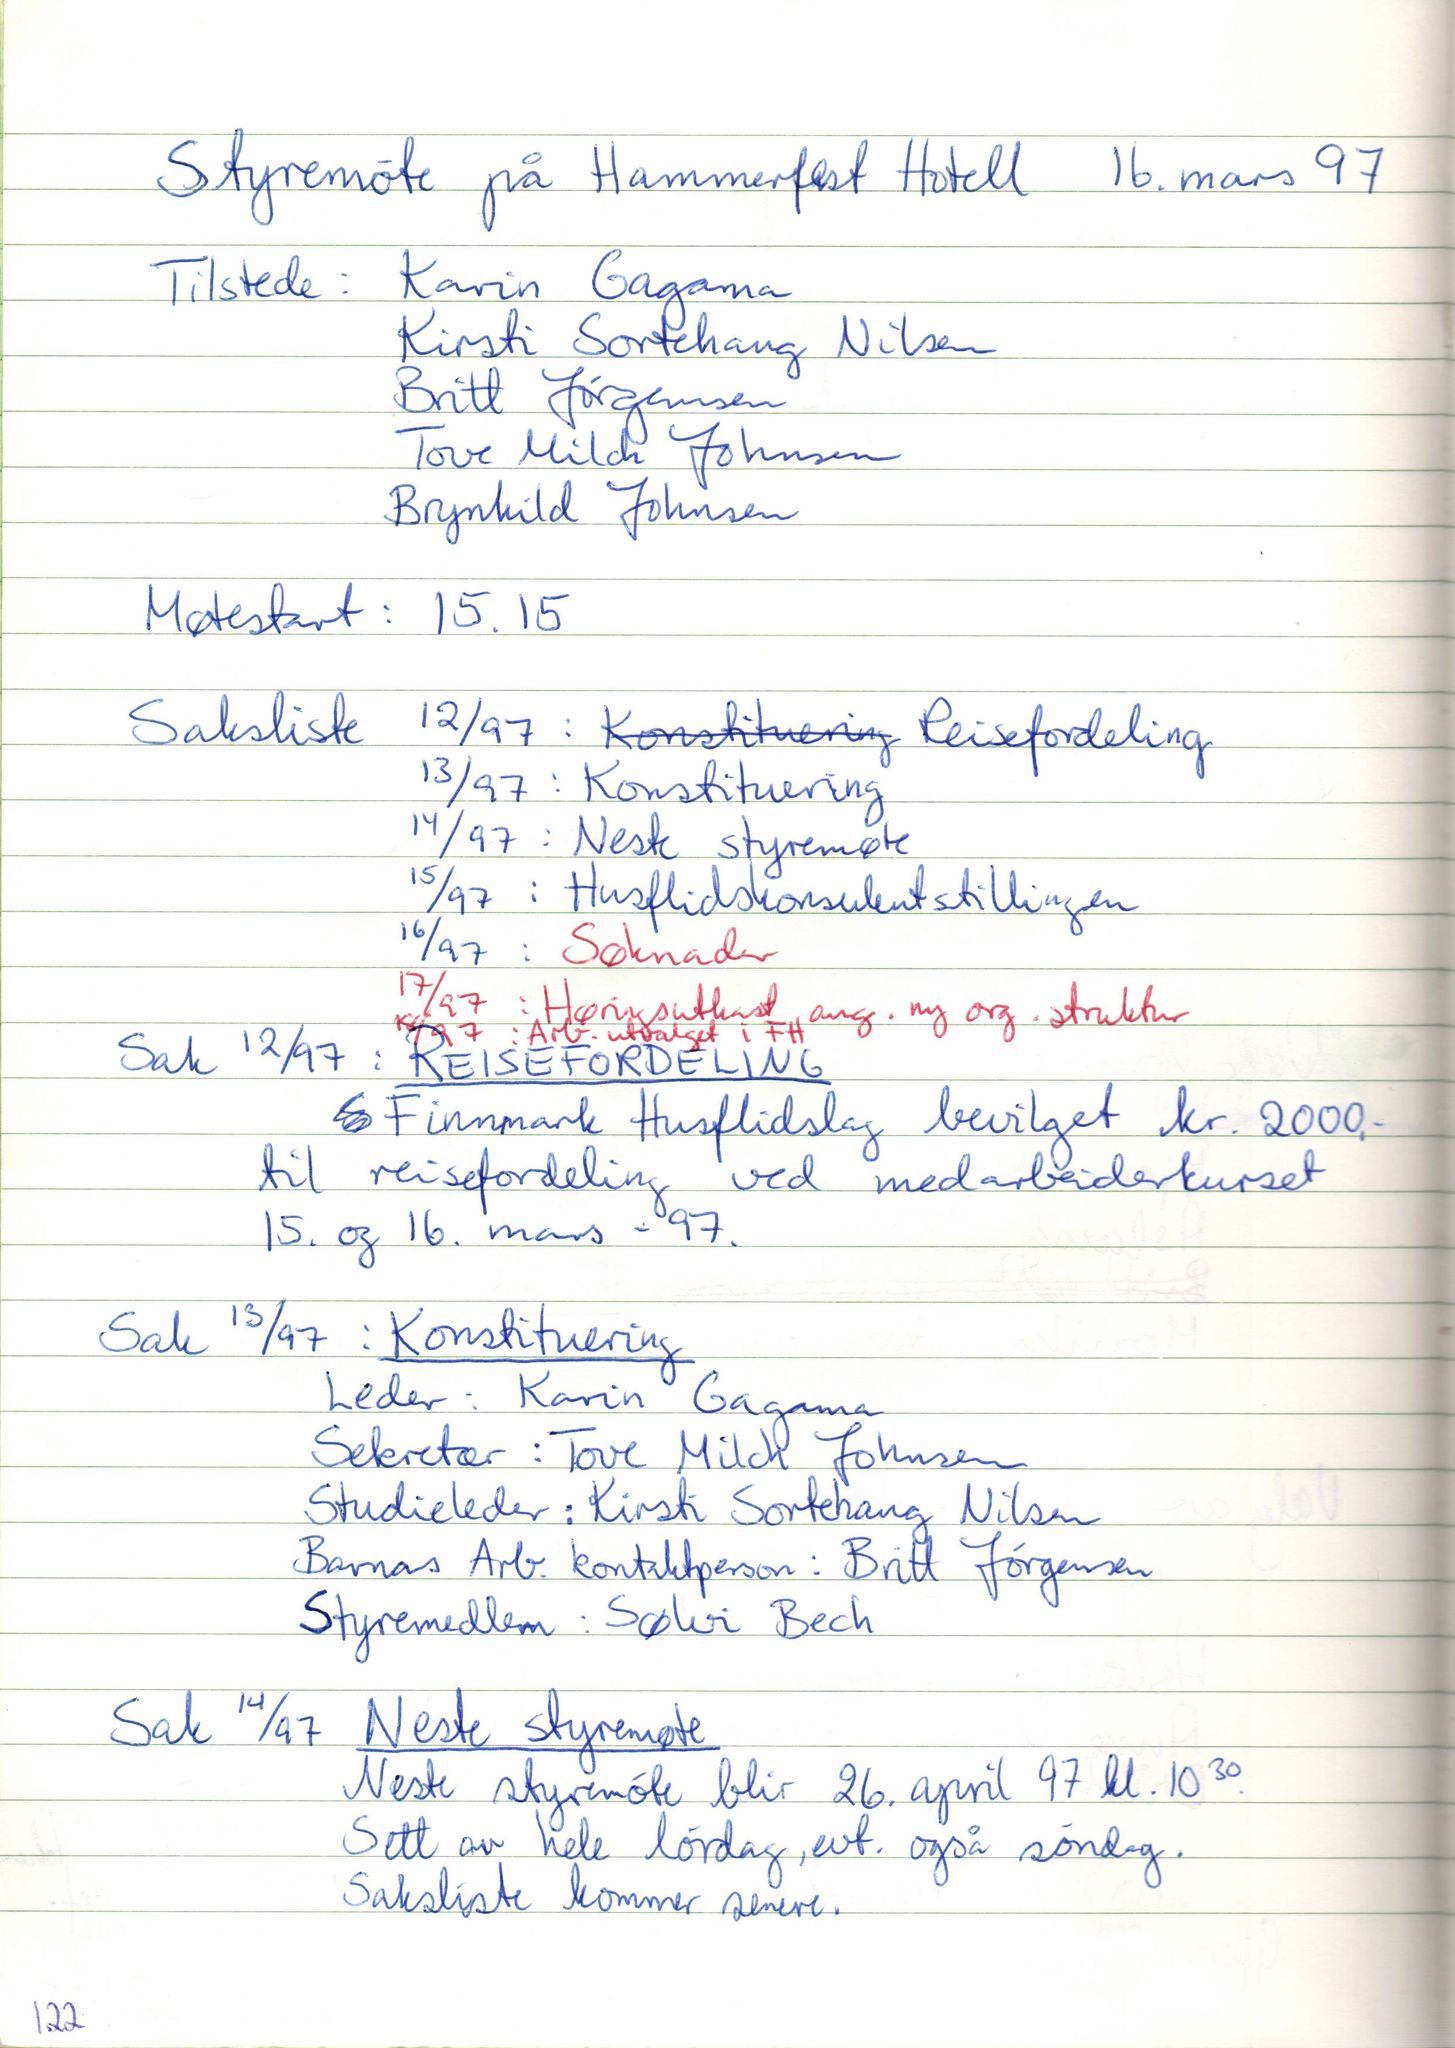 Styremöte på Hammerfest Hotell 16. mars 97
Tilstede : Karin Gagama
Kirsti Sortehaug Nilsen
Britt Jörgensen
Tove Milch Johnsen
Brynhild Johnsen
Møtestart : 15.15
Saksliste 12/97 : Konstituering Reisefordeling
13/97 : Konstituering
14/97 : Neste styremøte
15/97 : Husflidskonsulentstillingen
16/97 : Søknader
17/97 : Høringsutkast ang. ny org. struktur
18/97 : Arb. utvalget i FH
Sak 12/97 : REISEFORDELING
Finnmark Husflidslag bevilget kr. 2000,-
til reisefordeling ved medarbeiderkurset
15. og 16. mars - 97.
Sak 13/97 : Konstituering
Leder : Karin Gagama
Sekretær : Tove Milch Johnsen
Studieleder : Kirsti Sortehaug Nilsen
Barnas Arb. kontaktperson : Britt Jörgensen
Styremedlem : Sølvi Bech
Sak 14/97 Neste styremøte
Neste styremöte blir 26. april 97 kl. 10 30.
Sett av hele lördag, evt. også söndag.
Saksliste kommer senere.
122